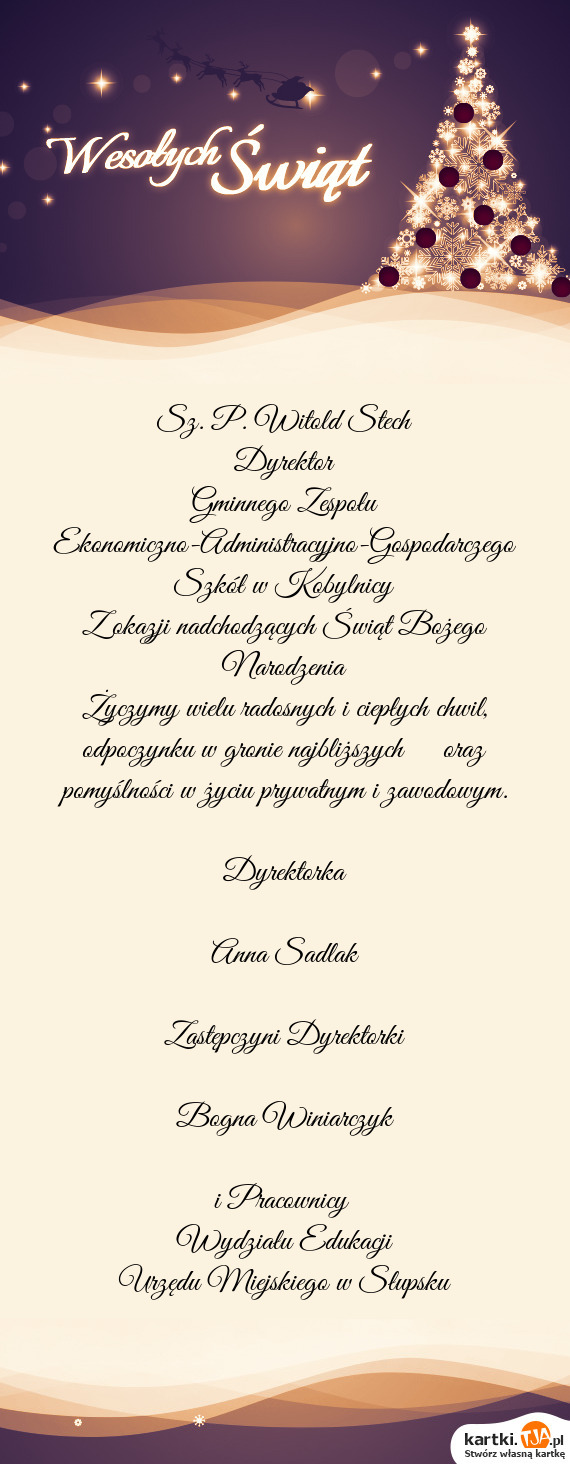 Wesołych Świąt
Sz. P. Witold Stech
Dyrektor
Gminnego Zespołu
Ekonomiczno-Administracyjno-Gospodarczego
Szkół w Kobylnicy
Z okazji nadchodzących Świąt Bożego
Narodzenia
Życzymy wielu radosnych i ciepłych chwil,
odpoczynku w gronie najbliższych oraz
pomyślności w życiu prywatnym i zawodowym.
Dyrektorka
Anna Sadlak
Zastępczyni Dyrektorki
Bogna Winiarczyk
i Pracownicy
Wydziału Edukacji
Urzędu Miejskiego w Słupsku
kartki.TJA.pl
Stwórz własną kartkę